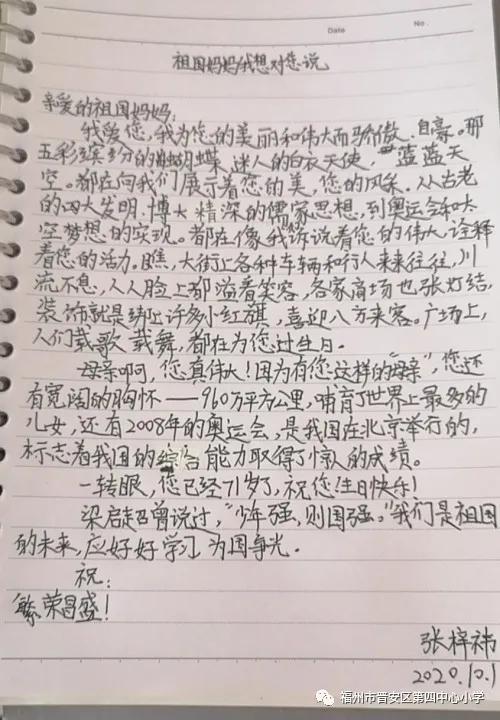 Date
No.
祖国妈妈我想对您说
亲爱的祖国妈妈:
我爱您,我为您的美丽和伟大而骄傲、自豪。那
五彩缤纷的蝴蝶,迷人的白衣天使,蓝蓝天
空。都在向我们展示着您的美,您的风采。从古老
的四大发明、博大精深的儒家思想,到奥运会和太
空梦想的实现。都在像我诉说着您的伟大,诠释
着您的活力。瞧,大街上各种车辆和行人来来往往,川
流不息,人人脸上都溢着笑容,各家商场也张灯结,
装饰就是绑上许多小红旗,喜迎八方来客。广场上,
人们载歌载舞,都在为您过生日。
母亲啊,您真伟大!因为有您这样的“母亲”,您还
有宽阔的胸怀——960万平方公里,哺育了世界上最多的
儿女,还有2008年的奥运会,是我国在北京举行的,
标志着我国的综合能力取得了惊人的成绩。
一转眼,您已经71岁了,祝您生日快乐!
梁启超曾说过,“少年强,则国强。”我们是祖国
的未来,应好好学习为国争光。
祝:
繁荣昌盛!
张梓祎
2020.10.1
福州市晋安区第四中心小学